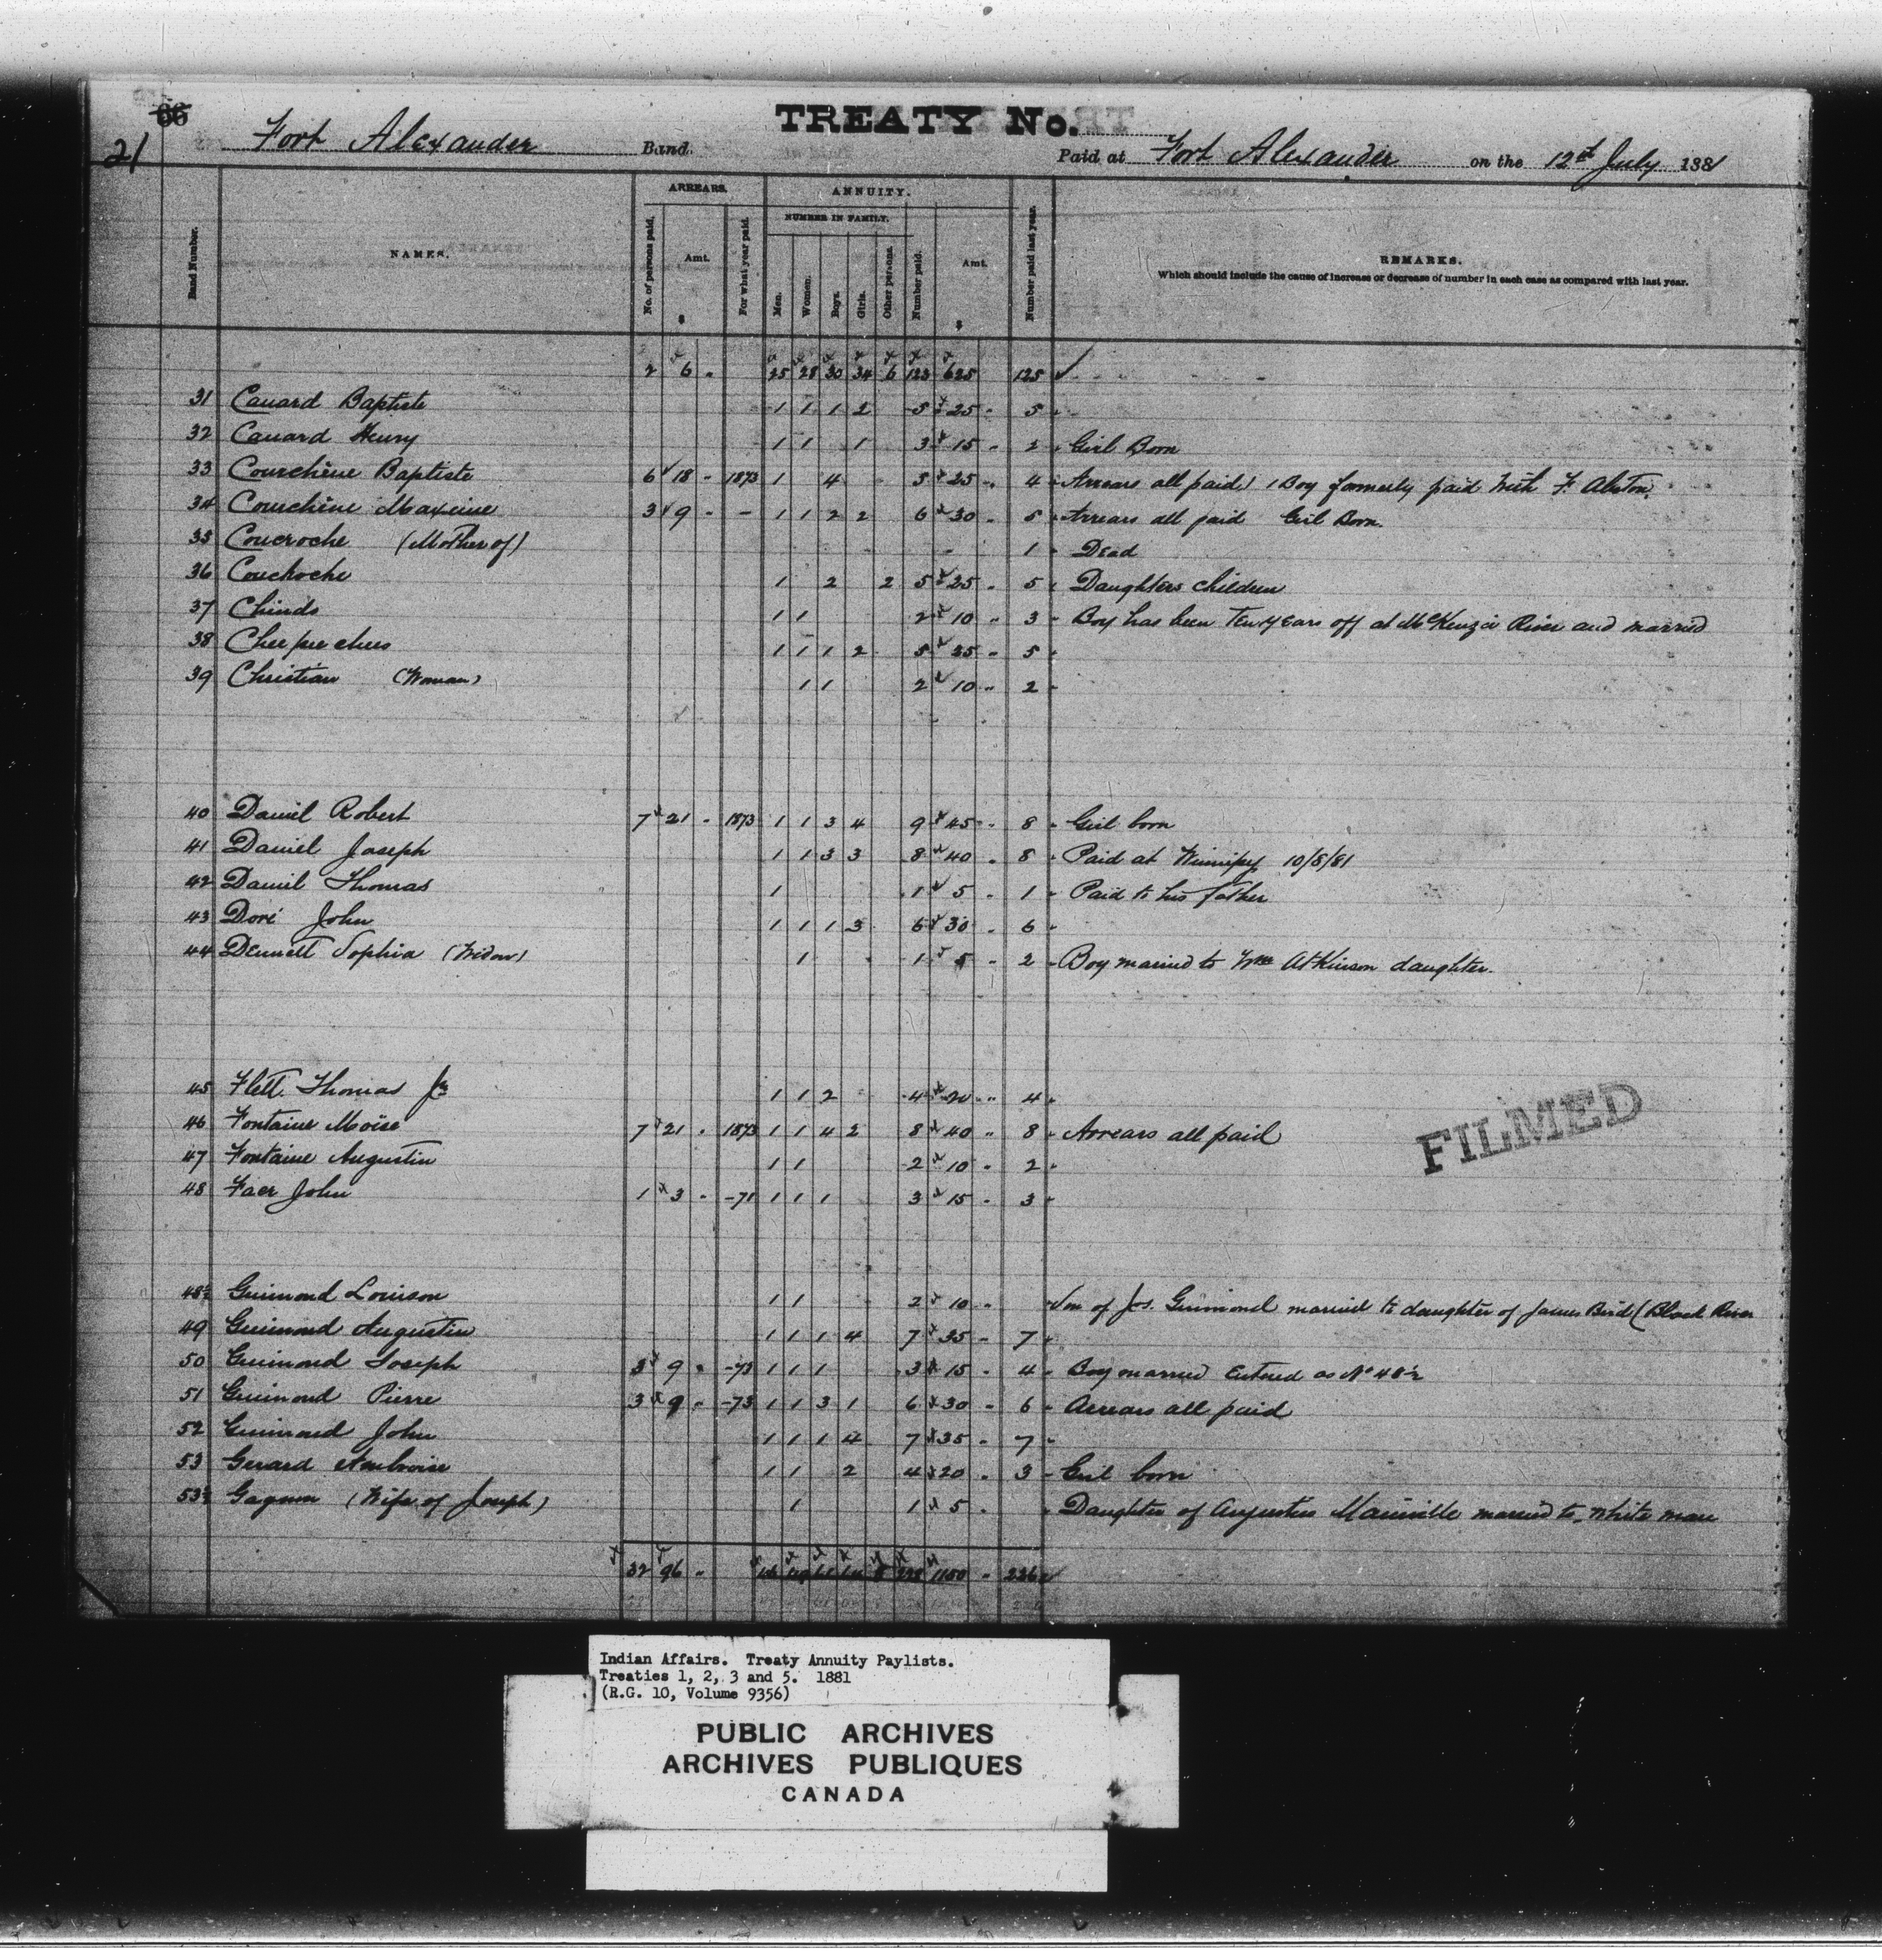 66
TREATY No.
21 Fort Alexander Band. Paid at Fort Alexander on the 12th July 1881
ARREARS. ANNUITY.
NUMBER IN FAMILY.
Band Number. NAMES. No. of persons paid. Amt. $ For what year paid. Men. Women. Boys. Girls. Other persons. Number paid. Amt. $ Number paid last year. REMARKS.
Which should include the cause of increase or decrease of number in each case as compared with last year.
2 6 25 28 30 34 6 123 625 125
31 Canard Baptiste 1 1 1 2 5 25 5
32 Canard Henry 1 1 1 3 15 2 Girl Born
33 Courchêne Baptiste 6 18 1873 1 4 5 25 4 Arrears all paid 1 Boy formerly paid with F. Alston.
34 Courchêne Maxime 3 9 - 1 1 2 2 6 30 5 Arrears all paid Girl Born.
35 Coucroche (Mother of) 1 Dead
36 Couchoche 1 2 2 5 25 5 Daughters children
37 Chinds 1 1 2 10 3 Boy has been Ten years off at McKenzie River and married
38 Cheepeechees 1 1 1 2 5 25 5
39 Christian (Woman) 1 1 2 10 2
40 Daniel Robert 7 21 1873 1 1 3 4 9 45 8 Girl born
41 Daniel Joseph 1 1 3 3 8 40 8 Paid at Winnipeg 10/8/81
42 Daniel Thomas 1 1 5 1 Paid to his father
43 Doré John 1 1 1 3 6 30 6
44 Dennett Sophia (Widow) 1 1 5 2 Boy married to Wm Atkinson daughter.
45 Flett Thomas Jr 1 1 2 4 20 4
46 Fontaine Moïse 7 21 1873 1 1 4 2 8 40 8 Arrears all paid
47 Fontaine Augustin 1 1 2 10 2
48 Faer John 1 3 -78 1 1 1 3 15 3
FILMED
48½ Guimond Louison 1 1 2 10 Son of Jos. Guimond married to daughter of James Bird (Black River
49 Guimond Augustin 1 1 1 4 7 35 7
50 Guimond Joseph 3 9 -73 1 1 1 3 15 4 Boy married Entered as No 48½
51 Guimond Pierre 3 9 -73 1 1 3 1 6 30 6 Arrears all paid
52 Guimond John 1 1 1 4 7 35 7
53 Gerard Ambroise 1 1 2 4 20 3 Girl born
53½ Gagnon (Wife of Joseph) 1 1 5 Daughter of Augustin Mainville married to white man
32 96 8 1150 226
Indian Affairs. Treaty Annuity Paylists.
Treaties 1, 2, 3 and 5. 1881
(R.G. 10, Volume 9356)
PUBLIC ARCHIVES
ARCHIVES PUBLIQUES
CANADA